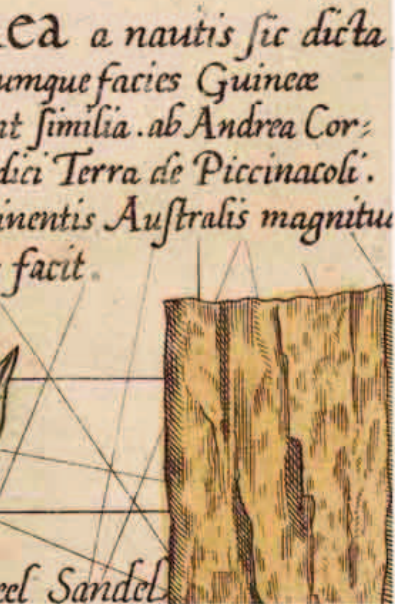 ea a nautis ſic dicta
umque facies Guineæ
nt ſimilia . ab Andrea Cor⸗
dici Terra de Piccinacoli .
inentis Auſtralis magnitu
facit .
eel Sandel